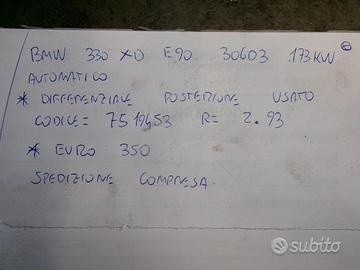 BMW 330 XD E90 306D3 173KW
AUTOMATICO
* DIFFERENZIALE POSTERIORE USATO
CODICE = 7519453 R = 2.93
* EURO 350
SPEDIZIONE COMPRESA.
subito